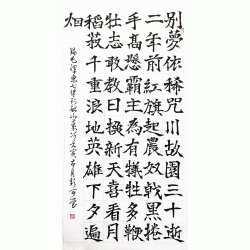 別夢依稀咒川故園三十逝
二年前紅旗起農奴戟黑捲
手高懸霸主為有犧牲多鞭
壯志敢教日換新天喜看月
稻菽千重浪地英雄下夕遍
烟
毛澤東七律到韶山